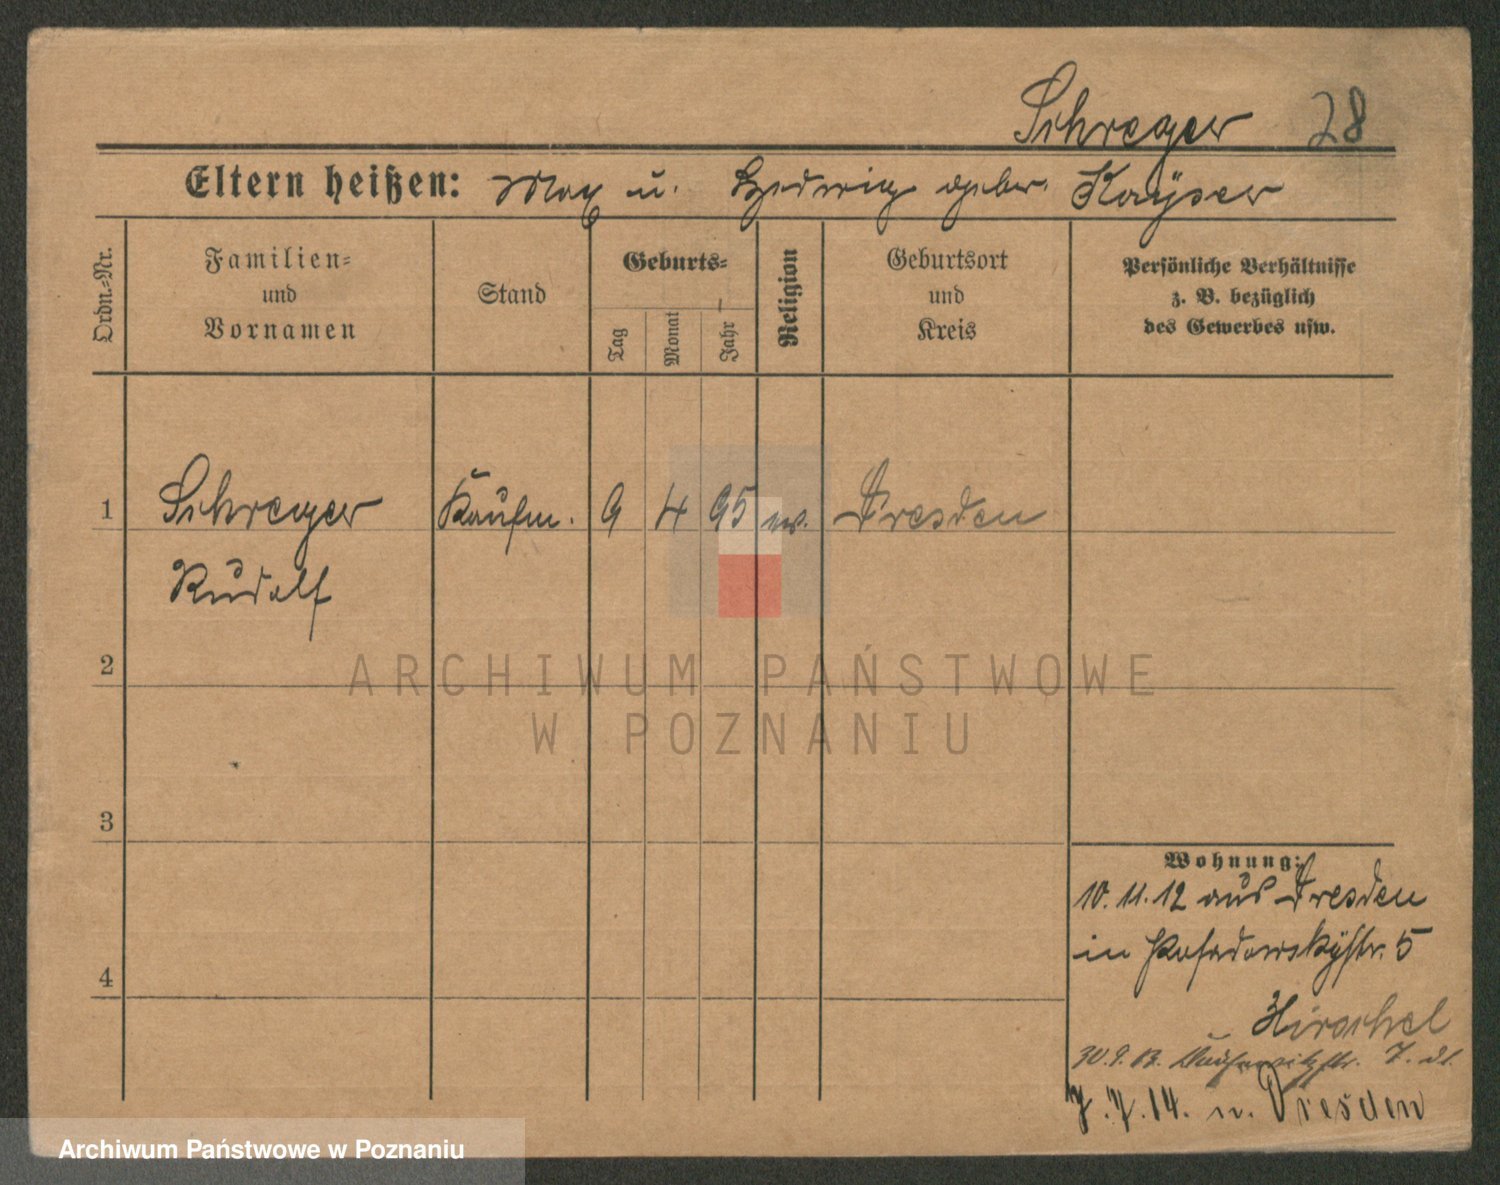 Schreger 28
Eltern heißen: Max u. Hedwig geb. Kayser
Ordn.-Nr.
Familien-
und
Vornamen
Stand
Geburts-
Tag
Monat
Jahr
Religion
Geburtsort
und
Kreis
Persönliche Verhältnisse
z. B. bezüglich
des Gewerbes usw.
1 Schreger Kaufm. 9 4 95 Dresden
Rudolf
2
3
4
ARCHIWUM PAŃSTWOWE
W POZNANIU
Wohnung:
10.11.12 aus Dresden
in Posadowskystr. 5
Hirschel
30.9.13. 7.
7.7.14. n. Dresden
Archiwum Państwowe w Poznaniu